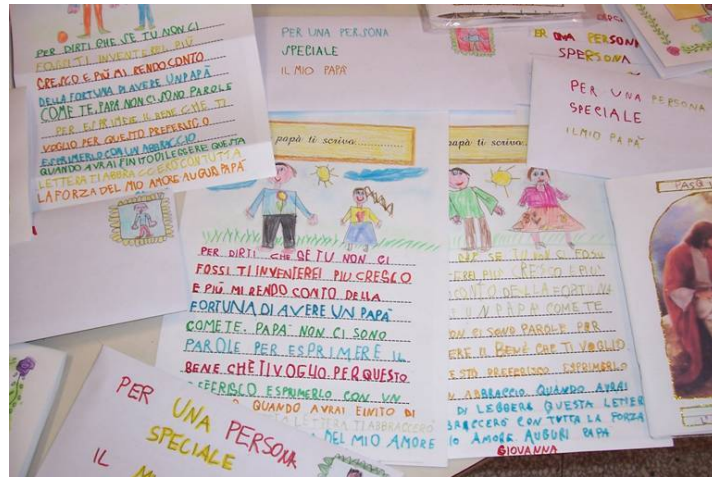 PER DIRTI CHE SE TU NON CI
FOSSI TI INVENTEREI PIÙ
CRESCO E PIÙ MI RENDO CONTO
DELLA FORTUNA DI AVERE UN PAPÀ
COME TE. PAPÀ NON CI SONO PAROLE
PER ESPRIMERE IL BENE CHE TI
VOGLIO PER QUESTO PREFERISCO
ESPRIMERLO CON UN ABBRACCIO
QUANDO AVRAI FINITO DI LEGGERE QUESTA
LETTERA TI ABBRACCERÒ CON TUTTA
LA FORZA DEL MIO AMORE AUGURI PAPÀ
PER UNA PERSONA
SPECIALE
IL MIO PAPÀ
UNA PERSONA
PER UNA PERSONA
SPECIALE
IL MIO PAPÀ
papà ti scrivo
PER DIRTI CHE SE TU NON CI
FOSSI TI INVENTEREI PIU CRESCO
E PIÙ MI RENDO CONTO DELLA
FORTUNA DI AVERE UN PAPÀ
COME TE. PAPÀ NON CI SONO
PAROLE PER ESPRIMERE IL
BENE CHE TI VOGLIO PER QUESTO
ESPRIMERLO CON UN
QUANDO AVRAI FINITO DI
LETTERA TI ABBRACCERÒ
DEL MIO AMORE
papà ti scrivo
SE TU NON CI FOSSI
PIÙ CRESCO E PIÙ
CONTO DELLA FORTUNA
UN PAPÀ COME TE
CI SONO PAROLE PER
IL BENE CHE TI VOGLIO
PREFERISCO ESPRIMERLO
ABBRACCIO QUANDO AVRAI
DI LEGGERE QUESTA LETTER
CON TUTTA LA FORZA
AMORE AUGURI PAPÀ
GIOVANNA
PER UNA PERSONA
SPECIALE
IL